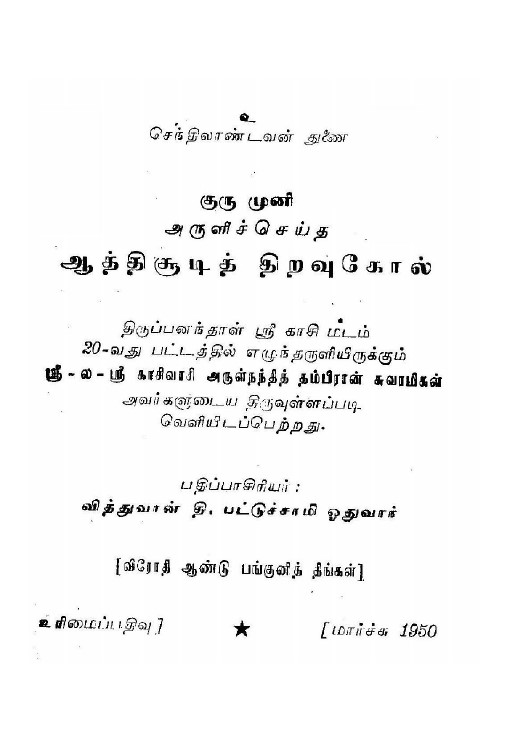 உ
செந்திலாண்டவன் துணை
குரு முனி
அருளிச்செய்த
ஆத்திசூடித் திறவுகோல்
திருப்பனந்தாள் ஸ்ரீ காசி மடம்
20-வது பட்டத்தில் எழுந்தருளியிருக்கும்
ஸ்ரீ-ல-ஸ்ரீ காசிவாசி அருள்நந்தித் தம்பிரான் சுவாமிகள்
அவர்களுடைய திருவுள்ளப்படி
வெளியிடப்பெற்றது.
பதிப்பாசிரியர் :
வித்துவான் தி. பட்டுச்சாமி ஓதுவார்
[விரோதி ஆண்டு பங்குனித் திங்கள்]
உரிமைப்பதிவு] ★ [மார்ச்சு 1950